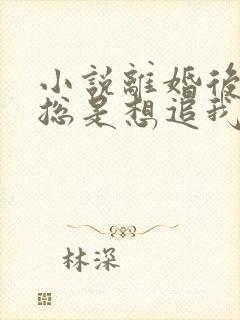 小説離婚後
総是想追我
林深